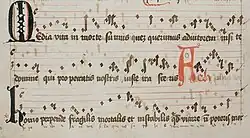 Media vita in morte sumus quez querimus adiutorem nisi te
domine qui pro peccatis nostris iuste irasceris Ach
homo perpende fragilis mortalis et instabilis vitare poteris